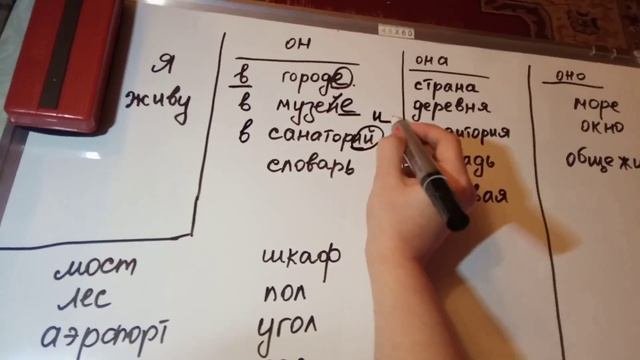 45x60
Я
живу
он
в городе.
в музейе
и
в санаторий
словарь
она
страна
деревня
оно
море
окно
мост
лес
аэропорт
шкаф
пол
угол